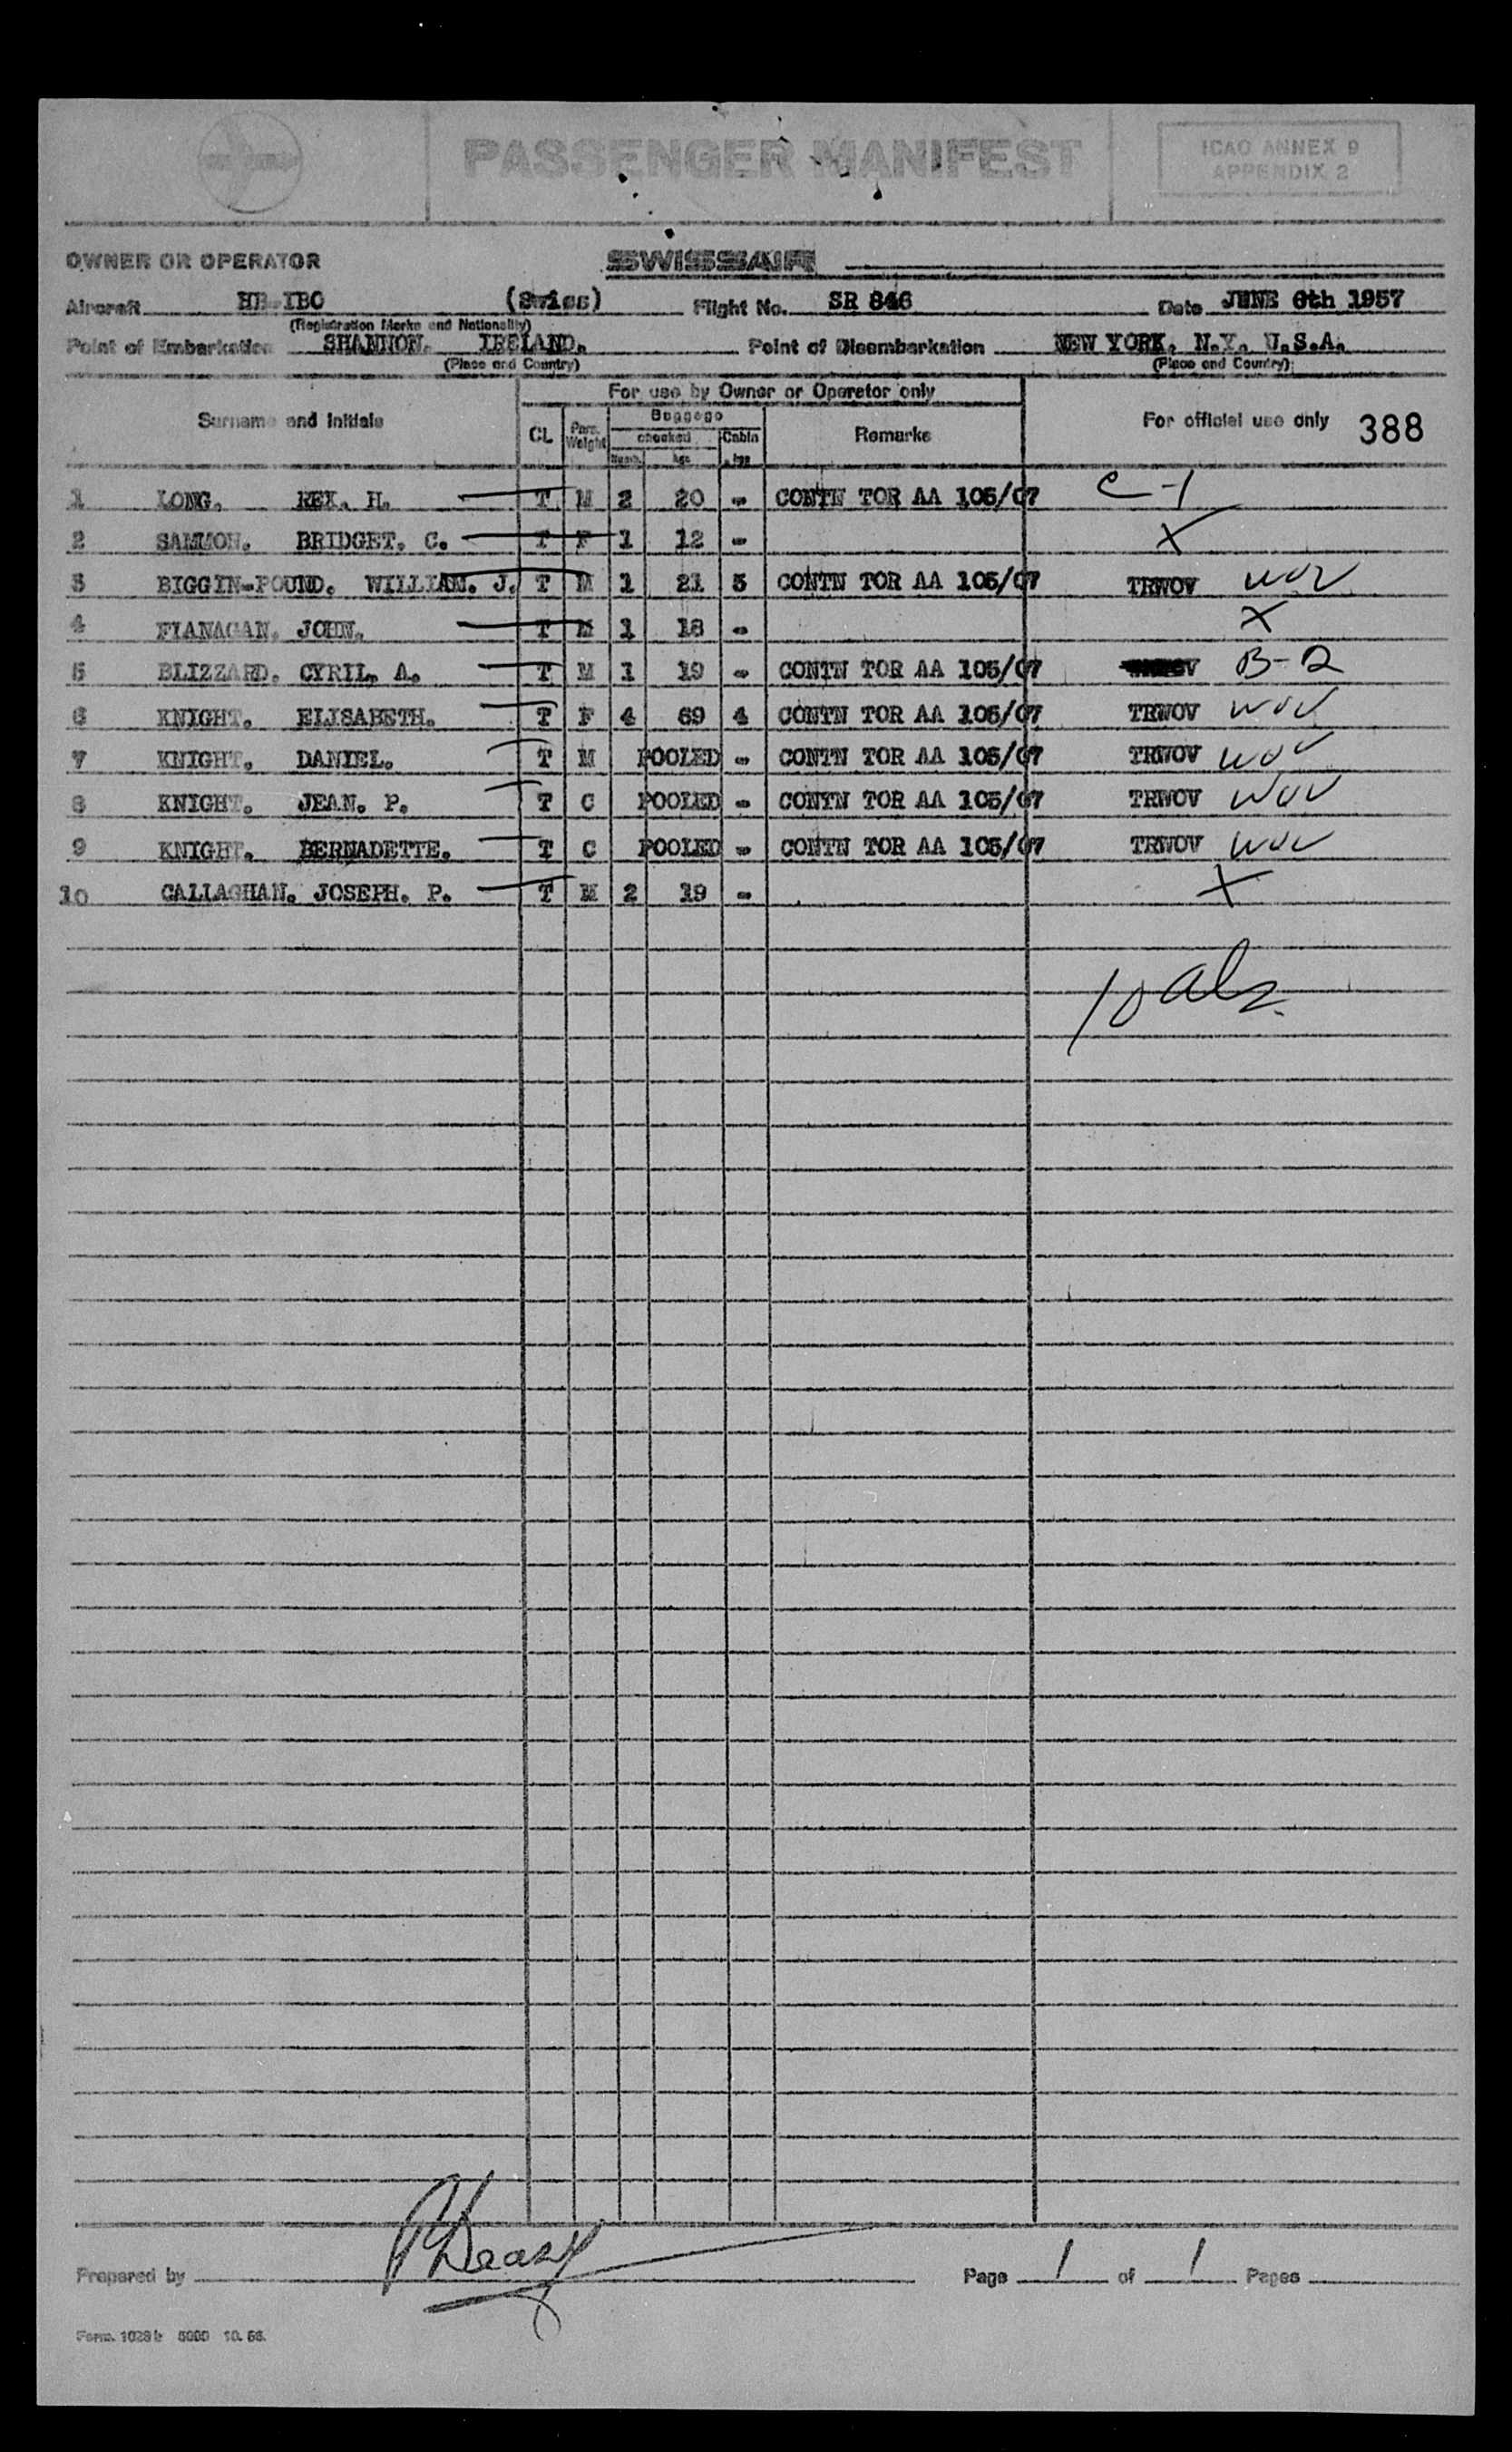 PASSENGER MANIFEST
ICAO ANNEX 9
APPENDIX 2
OWNER OR OPERATOR SWISSAIR
Aircraft HB-IBC (Swiss) Flight No. SR 846 Date JUNE 6th 1957
(Registration Marks and Nationality)
Point of Embarkation SHANNON. IRELAND. Point of Disembarkation NEW YORK, N.Y. U.S.A.
(Place and Country) (Place and Country)
For use by Owner or Operator only
Surname and initials CL Pers. Weight Baggage checked Cabin Remarks For official use only 388
Numb. kgs kgs
1 LONG. REX. H. T M 2 20 - CONTN TOR AA 105/07 C-1
2 SAMMON. BRIDGET. C. T F 1 12 - X
3 BIGGIN-POUND. WILLIAM. J. T M 1 21 5 CONTN TOR AA 105/07 TRWOV WOV
4 FLANAGAN. JOHN. T M 1 18 - X
5 BLIZZARD. CYRIL. A. T M 1 19 - CONTN TOR AA 105/07 B-2
6 KNIGHT. ELISABETH. T F 4 69 4 CONTN TOR AA 105/07 TRWOV WOV
7 KNIGHT. DANIEL. T M POOLED - CONTN TOR AA 105/07 TRWOV WOV
8 KNIGHT. JEAN. P. T C POOLED - CONTN TOR AA 105/07 TRWOV WOV
9 KNIGHT. BERNADETTE. T C POOLED - CONTN TOR AA 105/07 TRWOV WOV
10 CALLAGHAN. JOSEPH. P. T M 2 19 - X
10 als.
Prepared by Page 1 of 1 Pages
Form. 1028b 5000 10. 56.